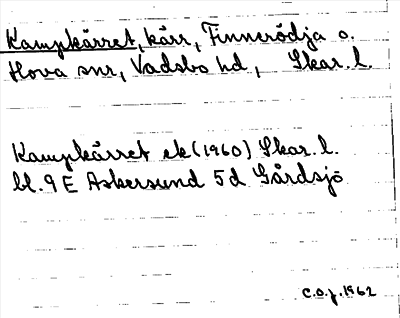 Kampkärret, kärr, Finnerödja o.
Hova snr, Vadsbo hd, Skar. l.
Kampkärret ek (1960) Skar. l.
bl. 9 E Askersund 5d Gårdsjö
C.O.J. 1962